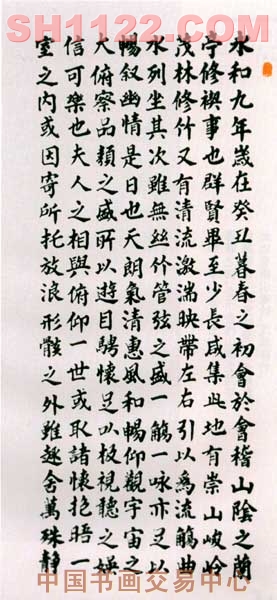 SH1122.COM
SH1122.COM
永和九年歲在癸丑暮春之初會於會稽山陰之蘭
亭修禊事也群賢畢至少長咸集此地有崇山峻岭
茂林修竹又有清流激湍映帶左右引以為流觴曲
水列坐其次雖無絲竹管弦之盛一觴一咏亦足以
暢叙幽情是日也天朗氣清惠風和暢仰觀宇宙之
大俯察品類之盛所以遊目騁懷足以极視聽之娛
信可樂也夫人之相與俯仰一世或取諸懷抱晤一
室之內或因寄所托放浪形骸之外雖趣舍萬殊靜
中国书画交易中心